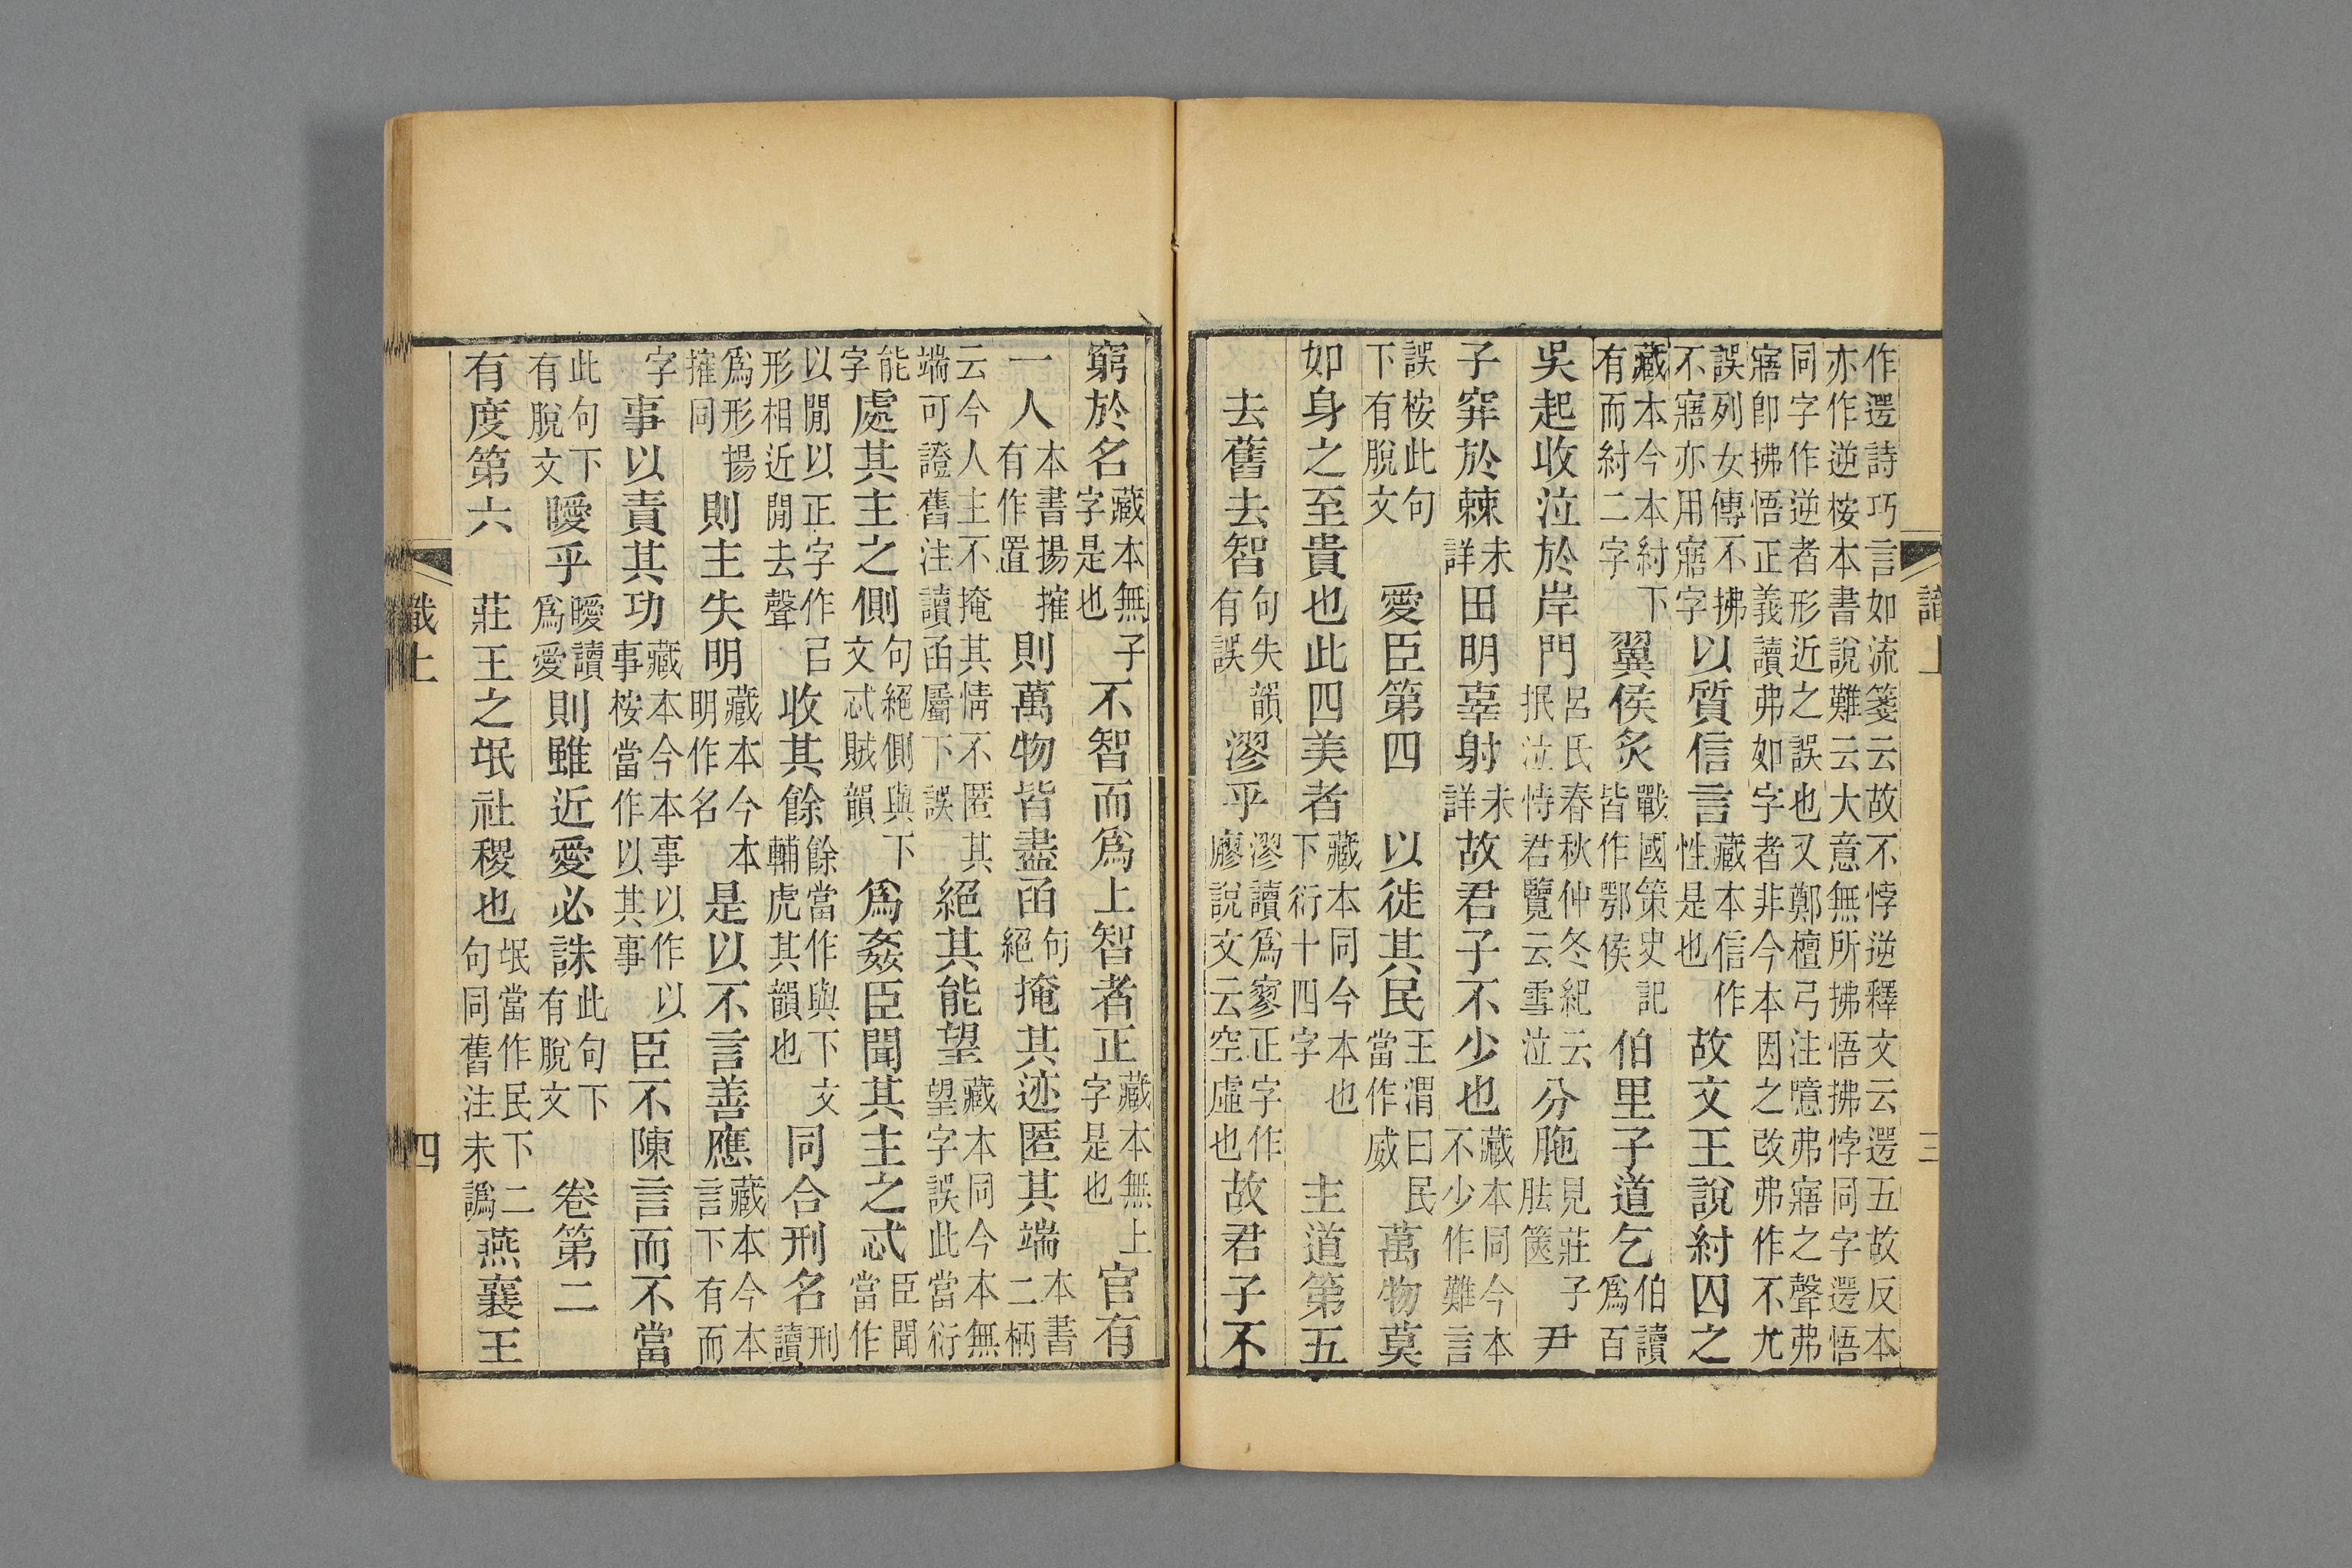 作遻詩巧言如流箋云故不悖逆釋文云遻五故反本亦作逆桉本書說難云大意無所拂悟拂悖同字遻悟
同字作逆者形近之誤也又鄭檀弓注噫弗寤之聲弗寤卽拂悟正義讀弗如字者非今本因之改弗作不尤
誤列女傳不拂不寤亦用寤字以質信言藏本信作性是也故文王說紂囚之
藏本今本紂下有而紂二字翼侯炙戰國策史記皆作鄂侯伯里子道乞伯讀爲百
吳起收泣於岸門呂氏春秋仲冬紀云抿泣恃君覽云雪泣分胣見莊子胠篋尹
子穽於棘未詳田明辜射未詳故君子不少也藏本同今本不少作難言
誤桉此句下有脫文　愛臣第四　以徙其民王渭曰民當作威萬物莫
如身之至貴也此四美者藏本同今本也下衍十四字　主道第五
去舊去智句失韻有誤漻乎漻讀爲寥正字作廫說文云空虛也故君子不
識上　三
窮於名藏本無子字是也不智而爲上智者正藏本無上字是也官有
一人本書揚搉有作置則萬物皆盡函句絕掩其迹匿其端本書二柄
云今人主不掩其情不匿其端可證舊注讀函屬下誤絕其能望藏本同今本無望字誤此當衍
能字處其主之側句絕側與下文忒賊韻爲姦臣聞其主之忒臣聞當作
以閒以正字作㠯形相近閒去聲收其餘餘當作與下文輔虎其韻也同合刑名刑讀
爲形揚搉同則主失明藏本今本明作名是以不言善應藏本今本言下有而
字事以責其功藏本今本事以作以事桉當作以其事臣不陳言而不當
此句下有脫文曖乎曖讀爲愛則雖近愛必誅此句下有脫文　卷第二
有度第六　莊王之氓社稷也氓當作民下二句同舊注未譌燕襄王
識上　四